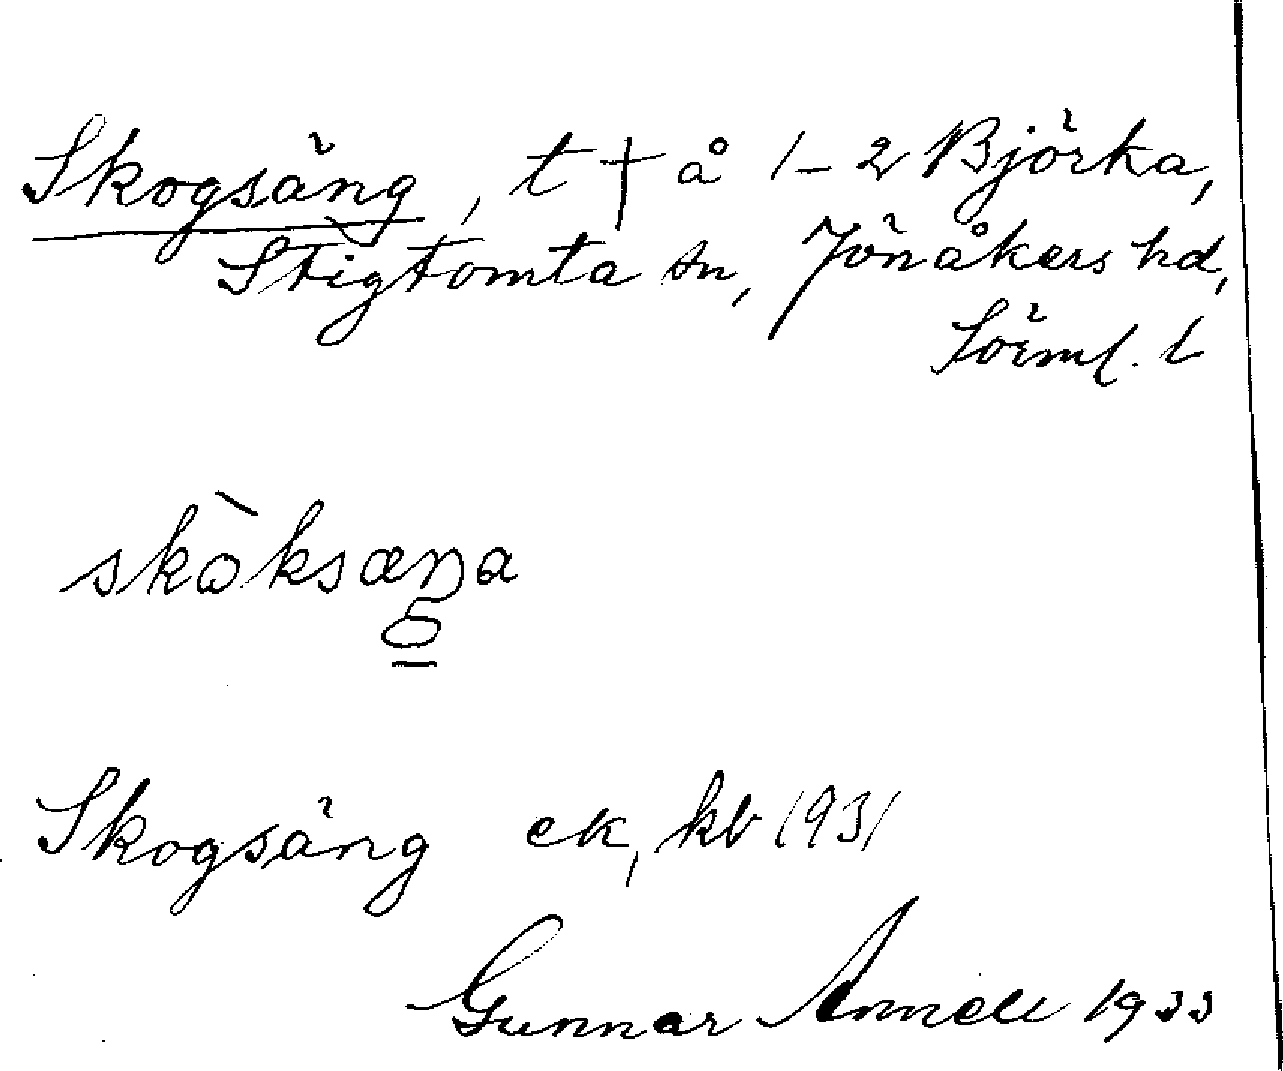 Skogsäng, t † å 1-2 Björka,
Stigtomta sn, Jönåkers hd,
Sörml. l
skòksæŋa
Skogsäng ek, kb 1931
Gunnar Annell 1933